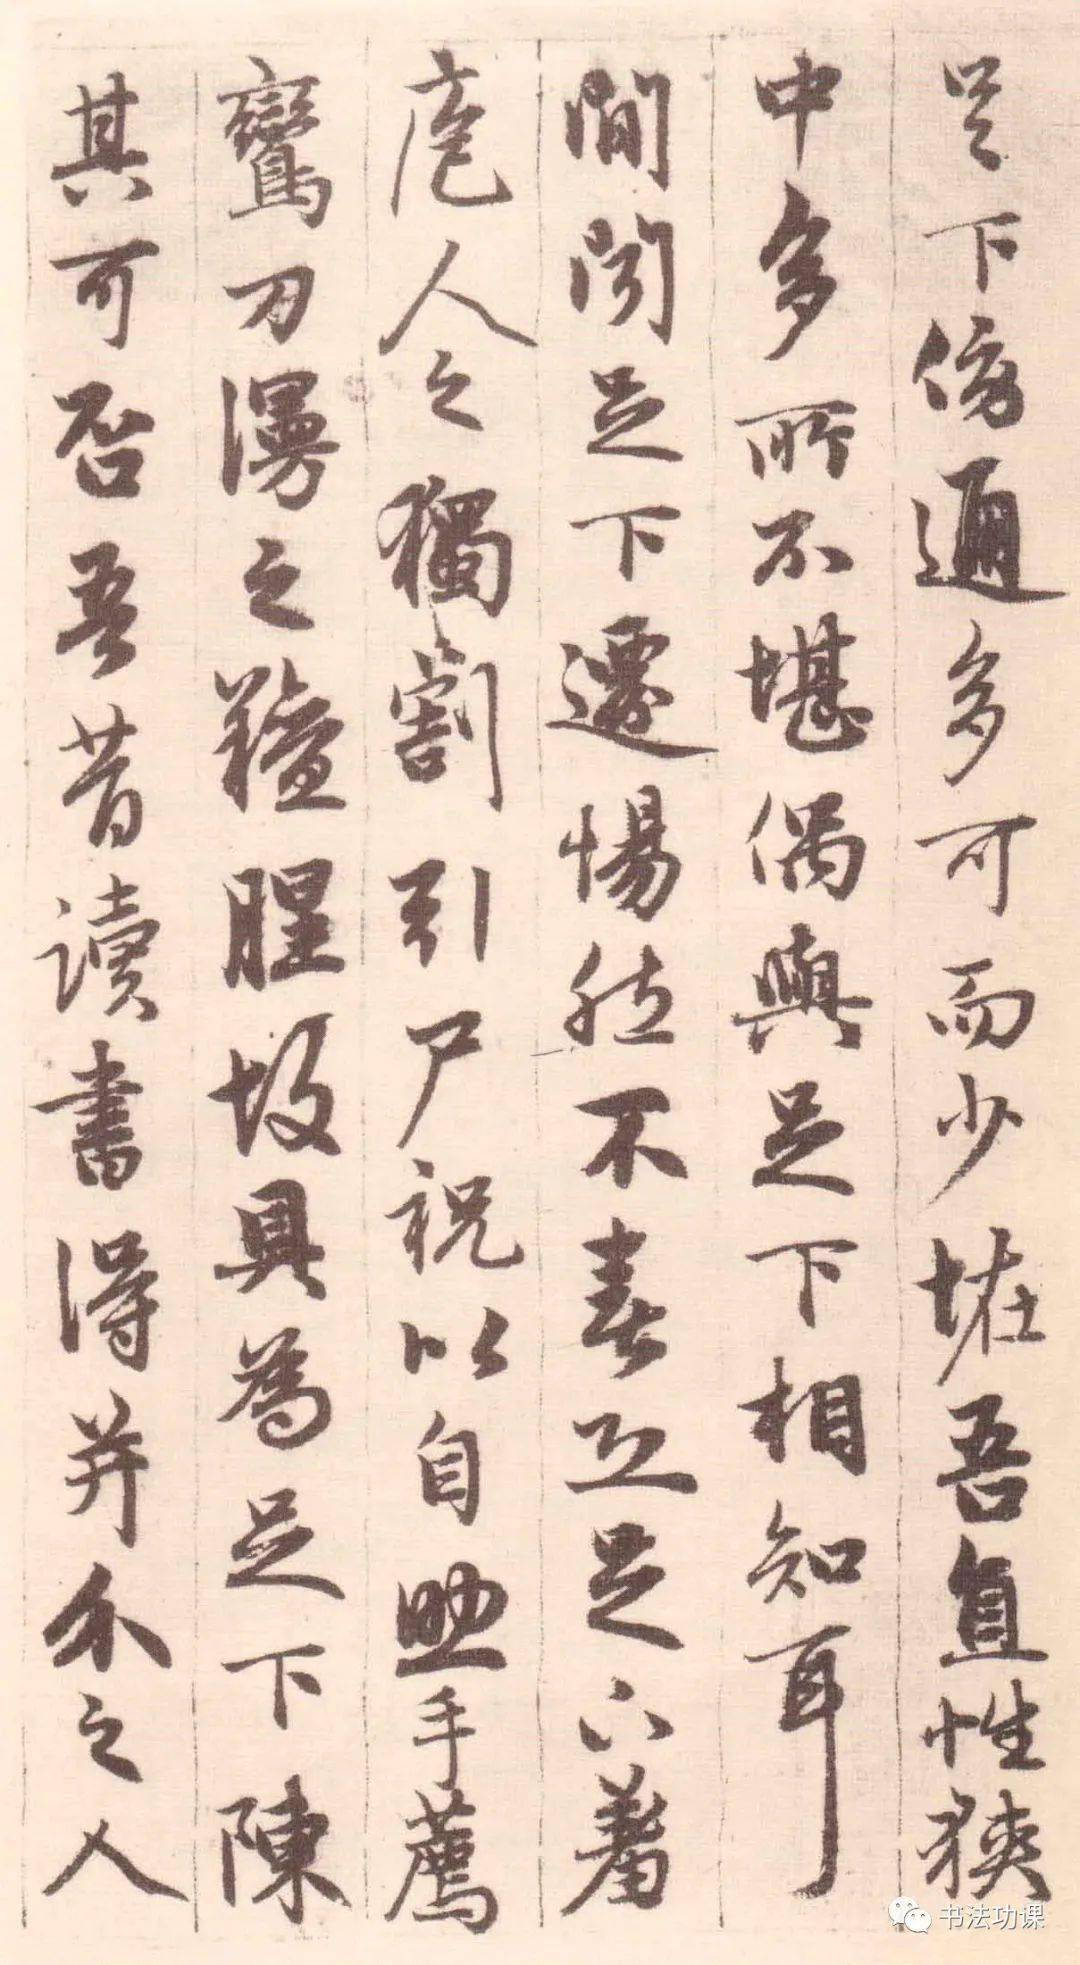 足下傍通多可而少恠吾直性狹
中多所不堪偶與足下相知耳
間聞足下遷惕然不喜恐足下羞
庖人之獨割引尸祝以自助手薦
鸞刀漫之羶腥故具為足下陳
其可否吾昔讀書得并介之人
书法功课